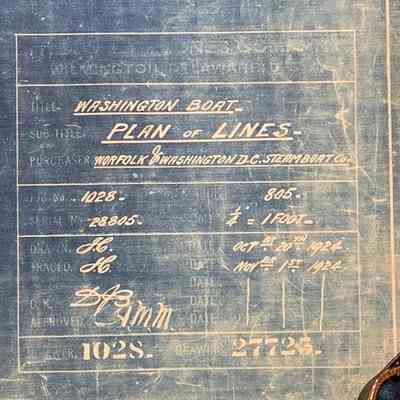 WILMINGTON, DELAWARE
TITLE- WASHINGTON BOAT-
SUB TITLE- PLAN OF LINES-
PURCHASER NORFOLK & WASHINGTON D.C. STEAMBOAT Co.
JOB NO. 1028- 805-
SERIAL NO. 28805- 1/4" = 1 FOOT-
DRAWN. J.C. DATE OCT. 20TH 1924
TRACED. J.C. DATE NOV. 1ST 1924
DATE
O.K. DATE
APPROVED. DATE
1028- DRAWER 27725-